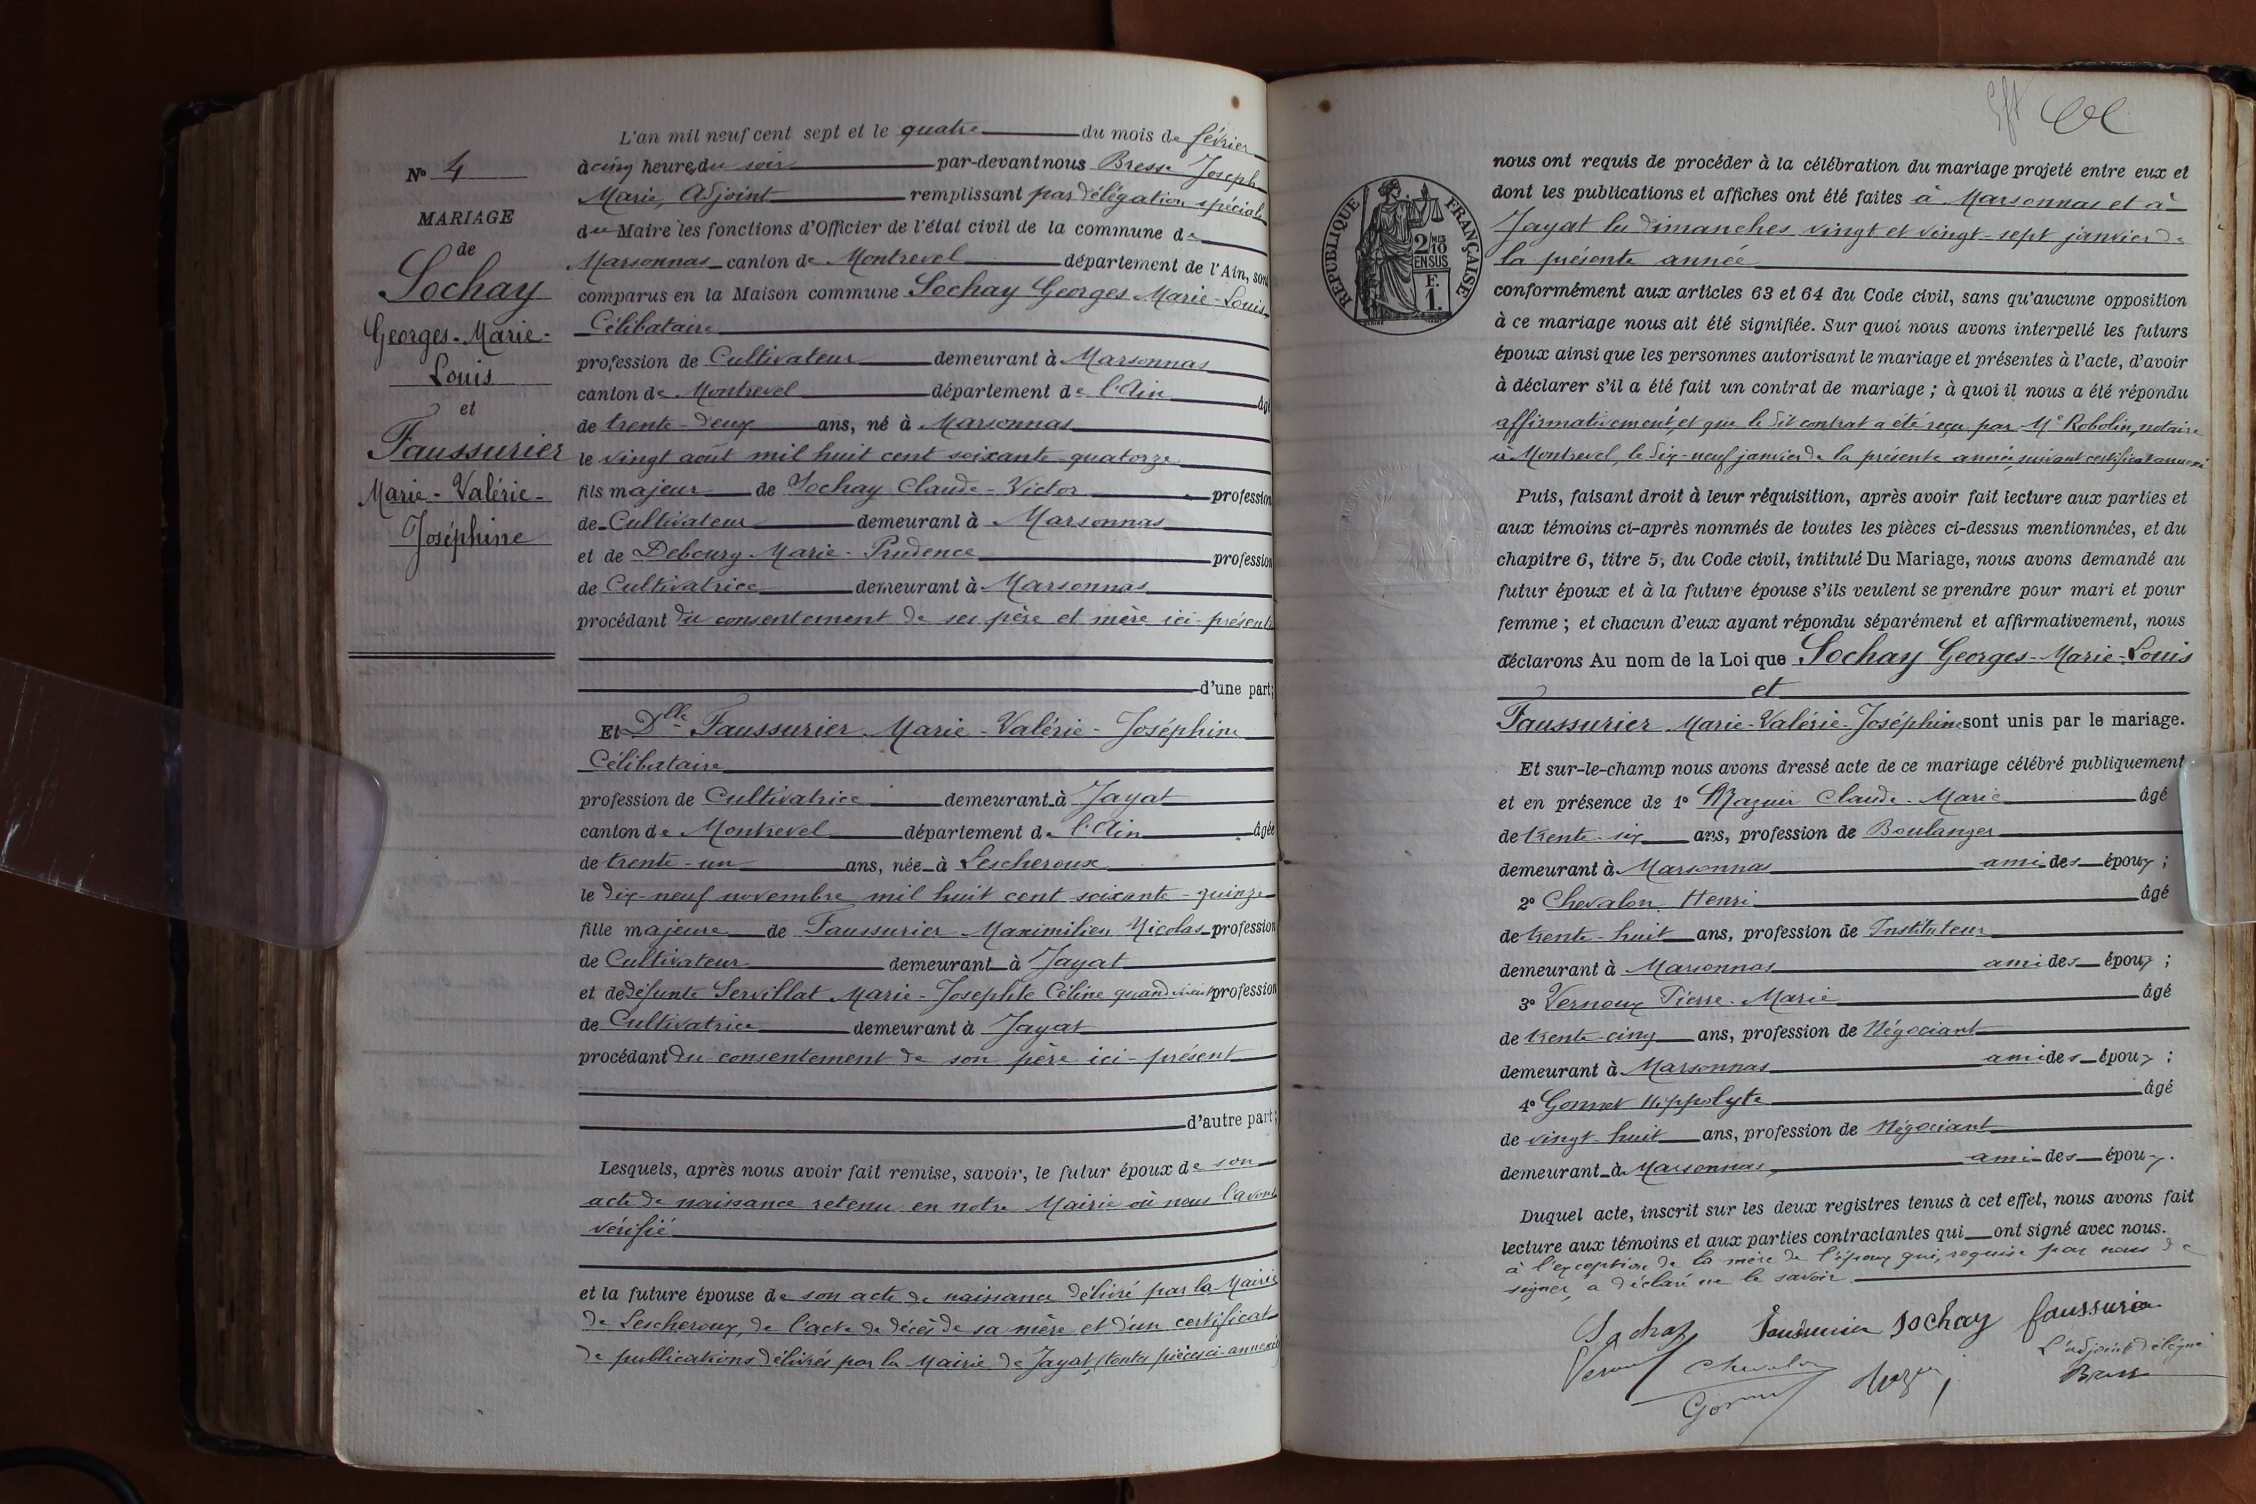 N° 4
MARIAGE
de
Sochay
Georges-Marie-
Louis
et
Faussurier
Marie-Valérie-
Joséphine
L'an mil neuf cent sept et le quatre du mois de février
à cinq heures du soir par-devant nous Bresse Joseph
Marie, Adjoint remplissant par délégation spéciale
du Maire les fonctions d'Officier de l'état civil de la commune de
Marsonnas canton de Montrevel département de l'Ain, sont
comparus en la Maison commune Sochay Georges Marie-Louis
Célibataire
profession de Cultivateur demeurant à Marsonnas
canton de Montrevel département de l'Ain âgé
de trente-deux ans, né à Marsonnas
le vingt août mil huit cent soixante-quatorze
fils majeur de Sochay Claude-Victor profession
de Cultivateur demeurant à Marsonnas
et de Debourg Marie-Prudence profession
de Cultivatrice demeurant à Marsonnas
procédant du consentement de ses père et mère ici-présents
d'une part;
Et Dlle Faussurier Marie-Valérie-Joséphine
Célibataire
profession de Cultivatrice demeurant à Jayat
canton de Montrevel département de l'Ain âgée
de trente-un ans, née à Lescheroux
le dix-neuf novembre mil huit cent soixante-quinze
fille majeure de Faussurier Maximilien Nicolas profession
de Cultivateur demeurant à Jayat
et de défunte Servillat Marie-Josephte Céline quand vivait profession
de Cultivatrice demeurant à Jayat
procédant du consentement de son père ici-présent
d'autre part;
Lesquels, après nous avoir fait remise, savoir, le futur époux de son
acte de naissance retenu en notre Mairie où nous l'avons
vérifié
et la future épouse de son acte de naissance délivré par la Mairie
de Lescheroux, de l'acte de décès de sa mère et d'un certificat
de publications délivrés par la Mairie de Jayat, (toutes pièces ci-annexées)
REPUBLIQUE FRANÇAISE
2/10 EN SUS
F.
1.
nous ont requis de procéder à la célébration du mariage projeté entre eux et
dont les publications et affiches ont été faites à Marsonnas et à
Jayat les dimanches vingt et vingt-sept janvier de
la présente année
conformément aux articles 63 et 64 du Code civil, sans qu'aucune opposition
à ce mariage nous ait été signifiée. Sur quoi nous avons interpellé les futurs
époux ainsi que les personnes autorisant le mariage et présentes à l'acte, d'avoir
à déclarer s'il a été fait un contrat de mariage ; à quoi il nous a été répondu
affirmativement et que le dit contrat a été reçu par Me Robolin, notaire
à Montrevel, le dix-neuf janvier de la présente année, suivant certificat annexé
Puis, faisant droit à leur réquisition, après avoir fait lecture aux parties et
aux témoins ci-après nommés de toutes les pièces ci-dessus mentionnées, et du
chapitre 6, titre 5, du Code civil, intitulé Du Mariage, nous avons demandé au
futur époux et à la future épouse s'ils veulent se prendre pour mari et pour
femme ; et chacun d'eux ayant répondu séparément et affirmativement, nous
déclarons Au nom de la Loi que Sochay Georges-Marie-Louis
et
Faussurier Marie-Valérie-Joséphine sont unis par le mariage.
Et sur-le-champ nous avons dressé acte de ce mariage célébré publiquement
et en présence de 1° Mazuir Claude-Marie âgé
de trente-six ans, profession de Boulanger
demeurant à Marsonnas ami des époux ;
2° Chevalon Henri âgé
de trente-huit ans, profession de Instituteur
demeurant à Marsonnas ami des époux ;
3° Vernoux Pierre-Marie âgé
de trente-cinq ans, profession de Négociant
demeurant à Marsonnas ami des époux ;
4° Gonnet Hippolyte âgé
de vingt-huit ans, profession de Négociant
demeurant à Marsonnas, ami des époux.
Duquel acte, inscrit sur les deux registres tenus à cet effet, nous avons fait
lecture aux témoins et aux parties contractantes qui ont signé avec nous.
à l'exception de la mère de l'époux qui, requise par nous de
signer, a déclaré ne le savoir.
Sochay Faussurier Sochay faussurier
L'adjoint délégué
Chevalon